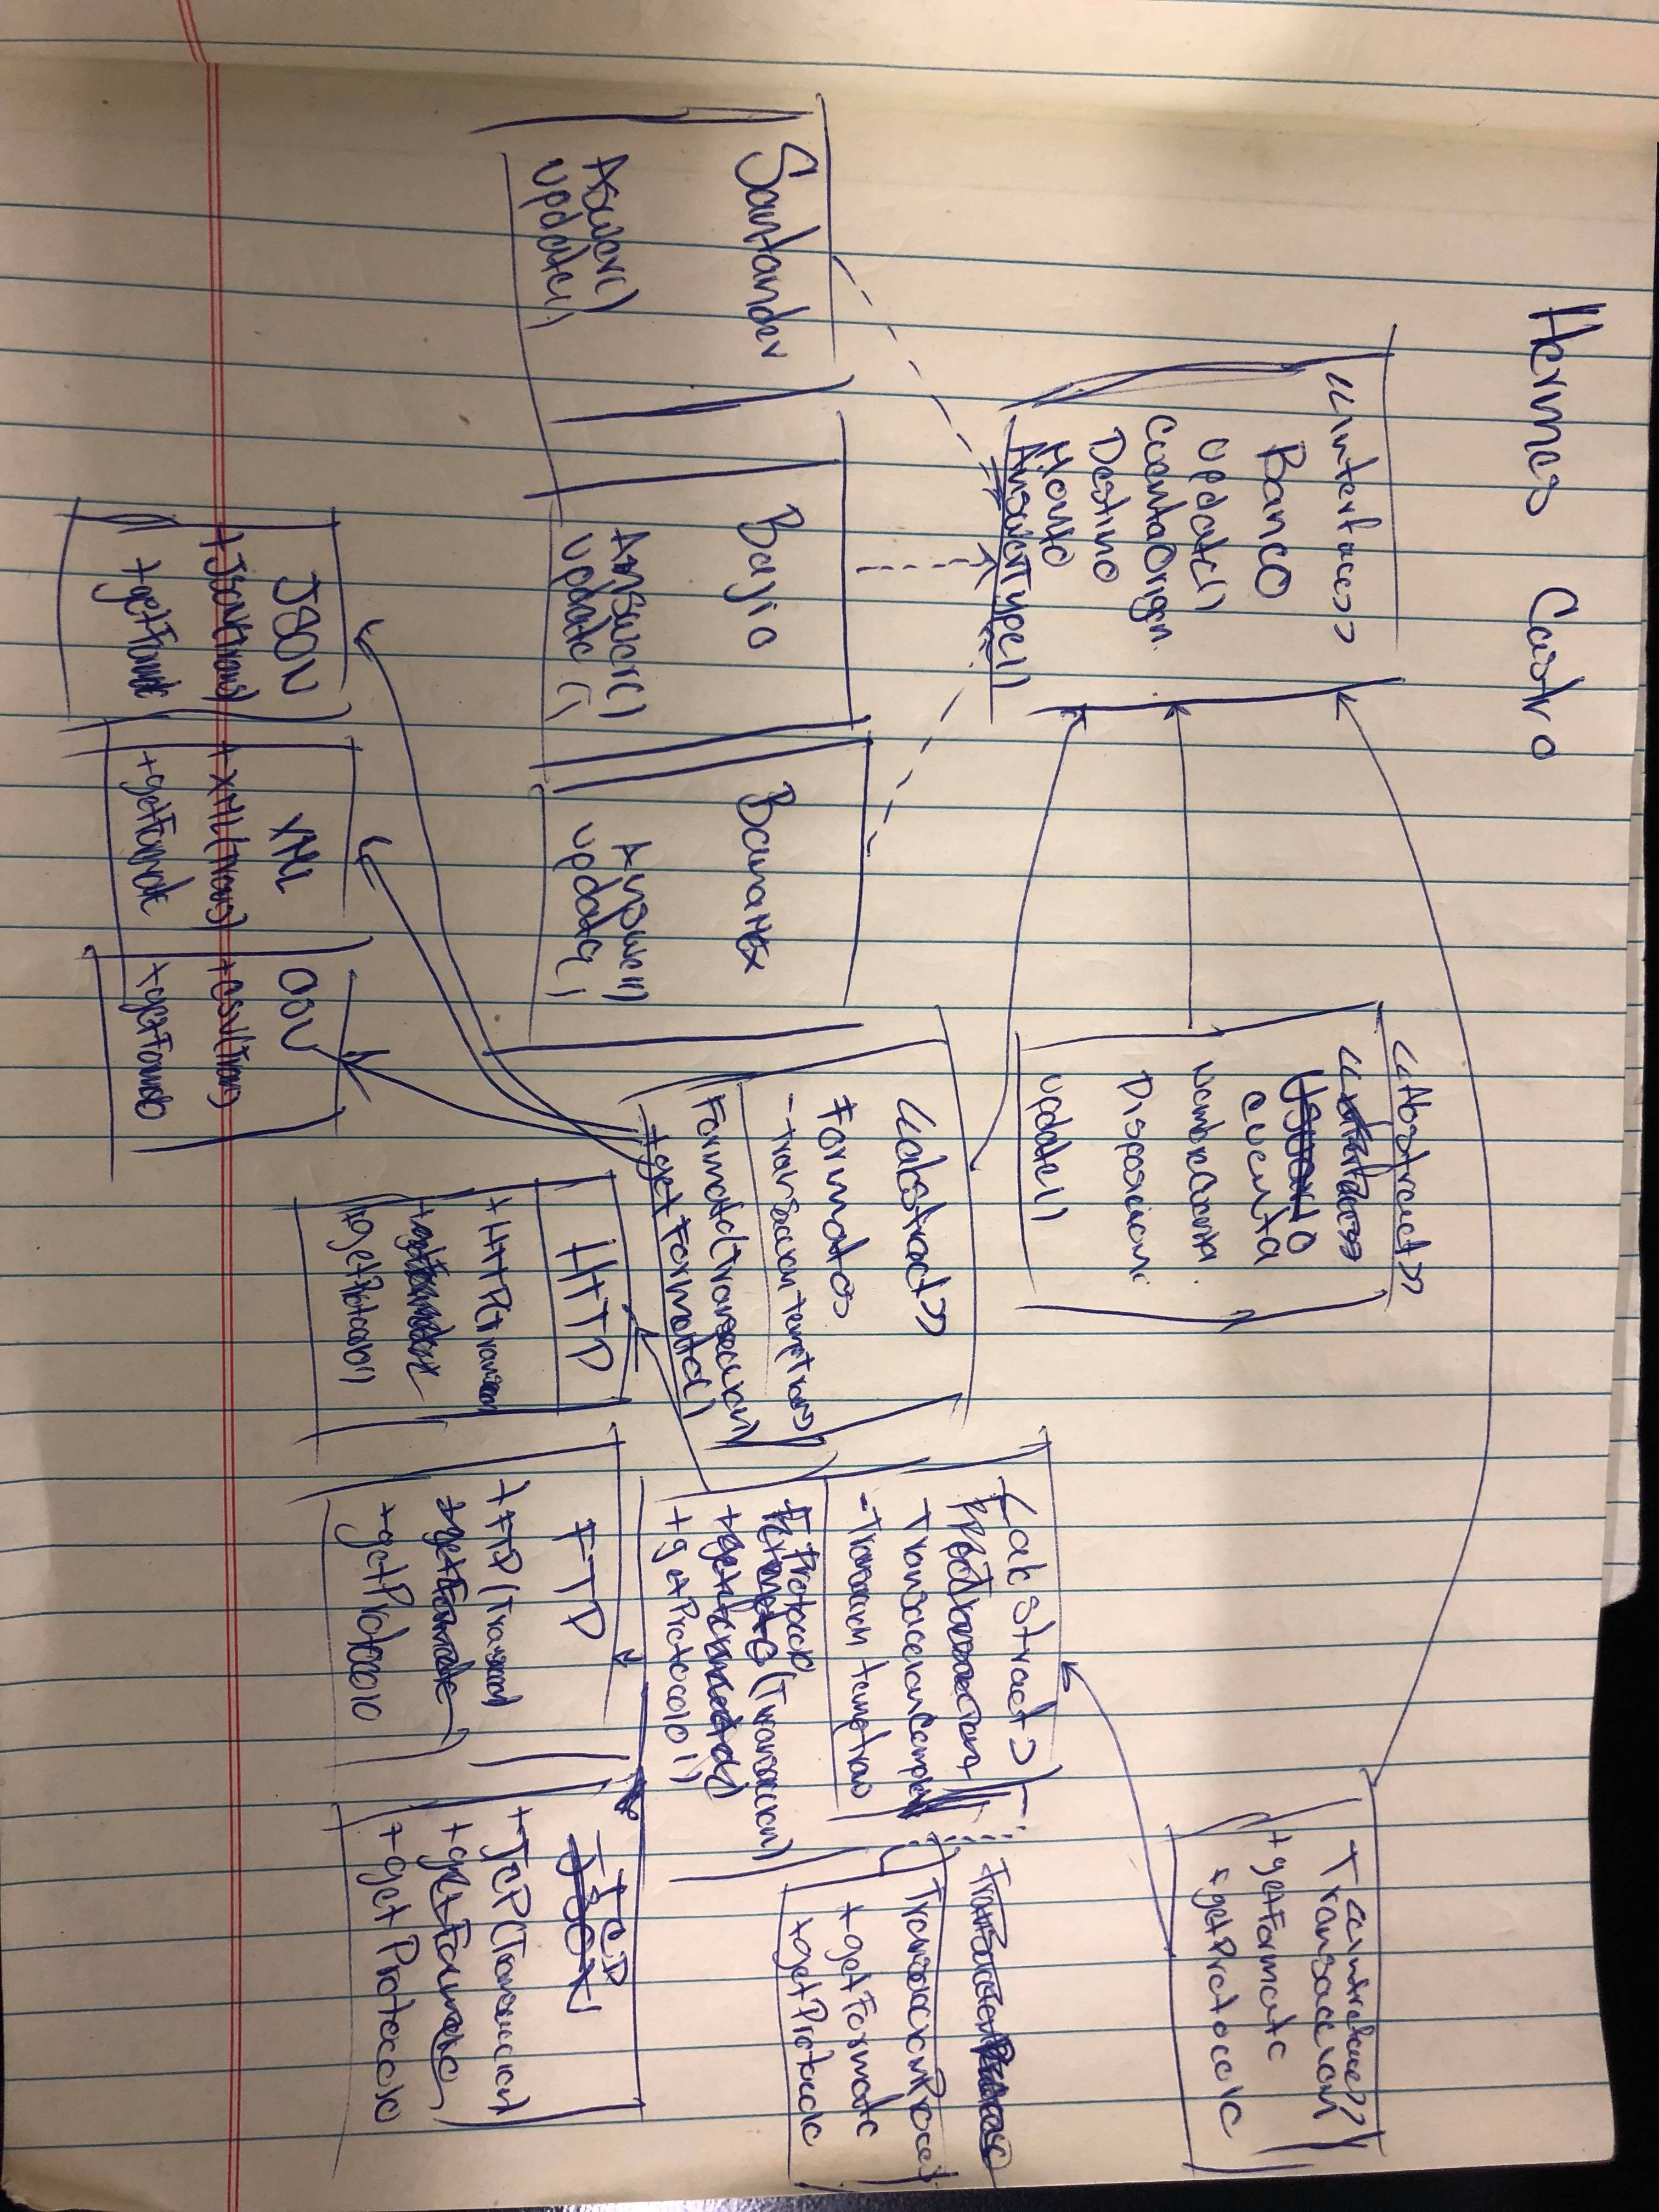 Hermes Castro
<<interface>>
Banco
update()
CuentaOrign.
Destino
Monto
AnswerType()
<<Abstract>>
<<interface>>
Usuario
cuenta
nombreCuenta
Disposicion
update()
<<interface>>
Transaccion
+getFormato
+getProtocolo
Santander
Aswer()
update()
Bajio
Answer()
update()
BanaMex
Answer()
update()
<abstract>>
Formatos
-transaccion temptrans
Formato(transaccion)
+getFormato()
<abstract>
TransaccionComplex
-Transaccion temptrans
Protocolo
Formato(Transaccion)
+getFormato()
+getProtocolo()
TransaccionProces
+getFormato
+getProtocolo
JSON
+JSON(trans)
+getFormato
XML
+XML(Trans)
+getFormato
CSV
+CSV(Trans)
+getFormato
HTTP
+HTTP(transaccion)
+getFormato
+getProtocolo()
FTP
+FTP(Transaccion)
+getFormato
+getProtocolo
TCP
JSON
+TCP(Transaccion)
+getFormato
+getProtocolo